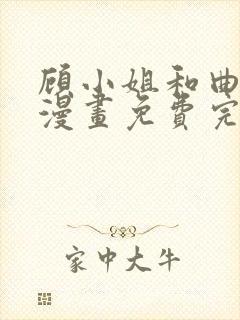 顾小姐和曲
漫畫免費完
家中大牛